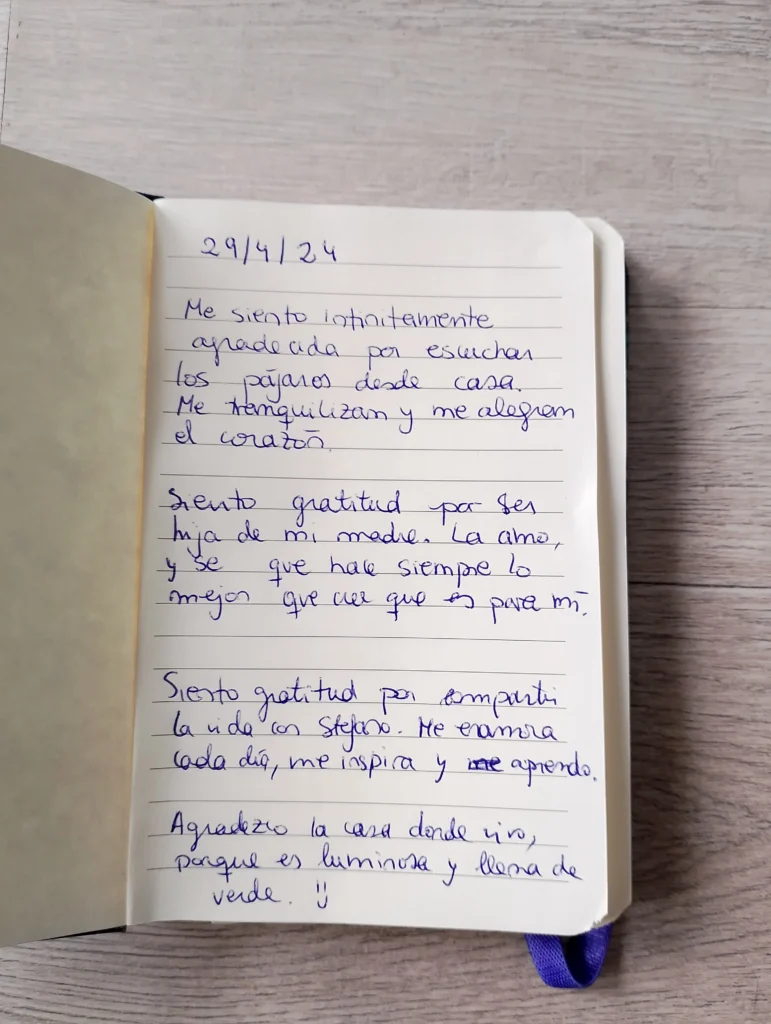 29/4/24
Me siento infinitamente
agradecida por escuchar
los pájaros desde casa.
Me tranquilizan y me alegran
el corazón.
Siento gratitud por ser
hija de mi madre. La amo,
y se que hace siempre lo
mejor que cree que es para mí.
Siento gratitud por compartir
la vida con Stefano. Me enamora
cada día, me inspira y me aprendo.
Agradezco la casa donde vivo,
porque es luminosa y llena de
verde. :)